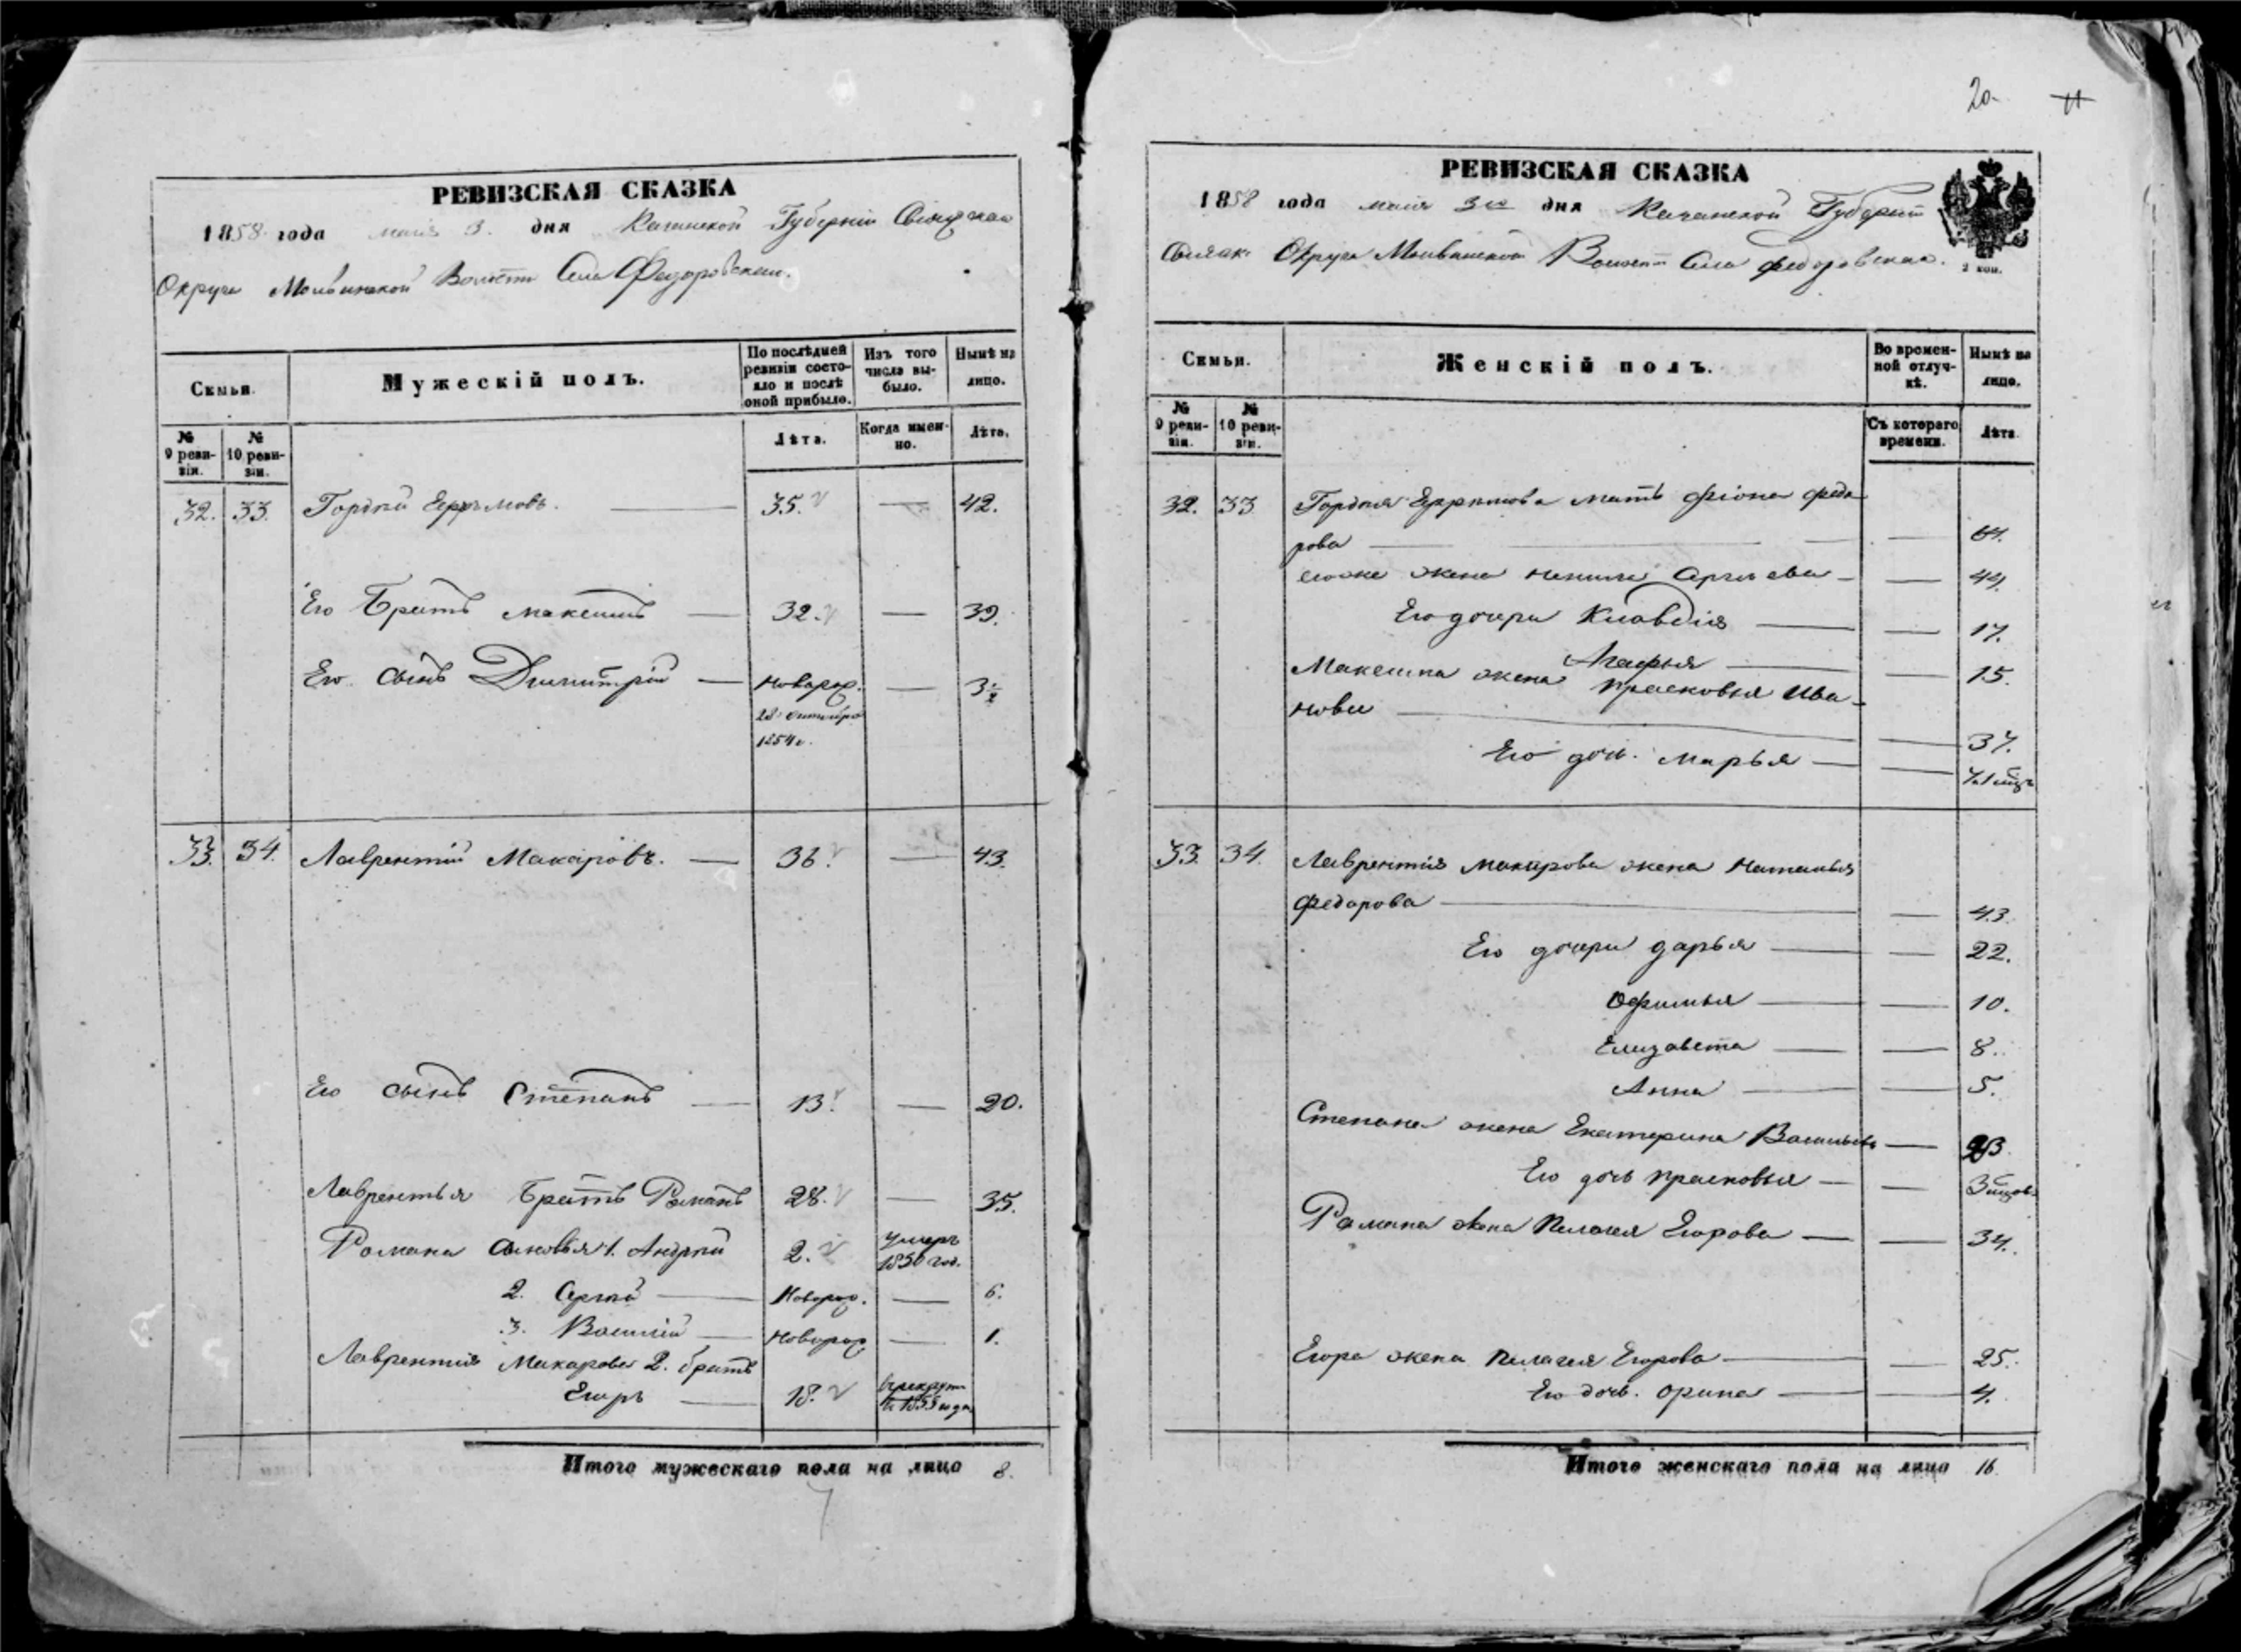 20.
РЕВИЗСКАЯ СКАЗКА
1858 года маія 3. дня Казанской Губерніи
Округа Волости Села Федоровскаго.
Семьи.
Мужескій полъ.
По послѣдней ревизіи состояло и послѣ оной прибыло.
Изъ того числа выбыло.
Нынѣ на лицо.
№ 9 ревизіи.
№ 10 ревизіи.
Лѣта.
Когда именно.
Лѣта.
32. 33. Гордѣй Ефремовъ. 35. — 42.
Его Братъ Максимъ — 32. — 39.
Его сынъ Димитрій — новорож. — 3½
28 октября
1854 г.
33. 34. Лаврентій Макаровъ. — 36. — 43.
Его сынъ Степанъ — 13. — 20.
Лаврентья Братъ Романъ 28. — 35.
Романа сыновья 1. Андрей 2. умеръ 1850 год.
2. Сергѣй — Новорож. — 6.
3. Василій — новорож. — 1.
Лаврентія Макарова 2. братъ
Егоръ — 18. 1855 года
Итого мужескаго пола на лицо 8.
РЕВИЗСКАЯ СКАЗКА
1858 года маія 3го дня Казанской Губерніи
Округа Волости Села Федоровскаго.
2 коп.
Семьи.
Женскій полъ.
Во временной отлучкѣ.
Нынѣ на лицо.
№ 9 ревизіи.
№ 10 ревизіи.
Съ котораго времени.
Лѣта.
32. 33 Гордѣя Ефремова мать Фіона Федо
рова — — 64.
его же жена — 44.
Его дочери Клавдія — — 17.
Агафья — — 15.
Максима жена Прасковья Ива-
нова — — 37.
Его дочь. Марья — —
33. 34. Лаврентія Макарова жена Наталья
Федорова — — 43.
Его дочери Дарья — — 22.
Офимья — — 10.
Елизавета — — 8.
Анна — — 5.
Степана жена Екатерина Васильева — 23.
Его дочь Прасковья — — 3 мѣсяцов.
Романа жена Пелагея Егорова — — 34.
Егора жена Пелагея Егорова — — 25.
Его дочь. Орина — — 4.
Итого женскаго пола на лицо 16.